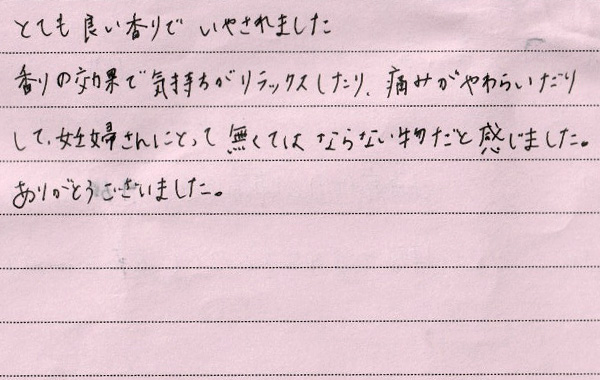 とても良い香りで いやされました
香りの効果で気持ちがリラックスしたり、痛みがやわらいだり
して、妊婦さんにとって無くてはならない物だと感じました。
ありがとうございました。